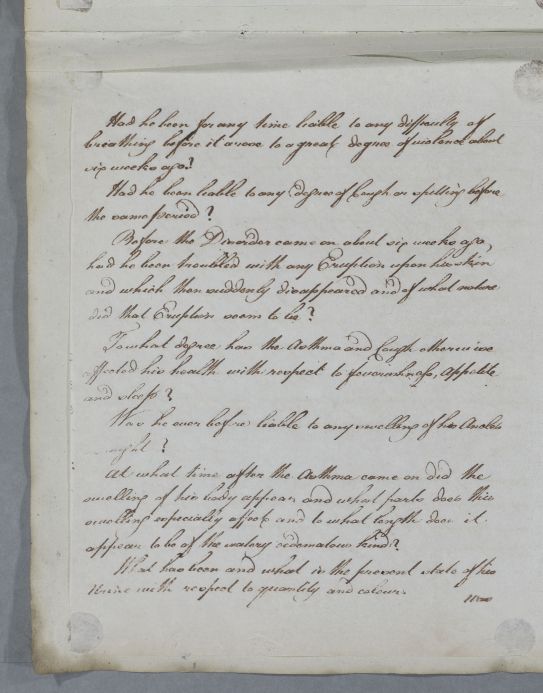 Had he been for any time liable to any difficulty of
breathing before it arose to a great degree of violence about
six weeks ago?
Had he been liable to any degree of Cough or spitting before
the same period?
Before the Disorder came on about six weeks ago,
had he been troubled with any Eruption upon his skin
and which then suddenly disappeared and of what nature
did that Eruption seem to be?
To what degree has the Asthma and Cough otherwise
affected his health with respect to feverishness, appetite
and sleep?
Was he ever before liable to any swelling of his Ancles
night?
At what time after the Asthma came on did the
swelling of his body appear and what parts does this
swelling especially affect and to what length does it
appear to be of the watery œdematous kind?
What has been and what is the present state of his
Urine with respect to quantity and colour.